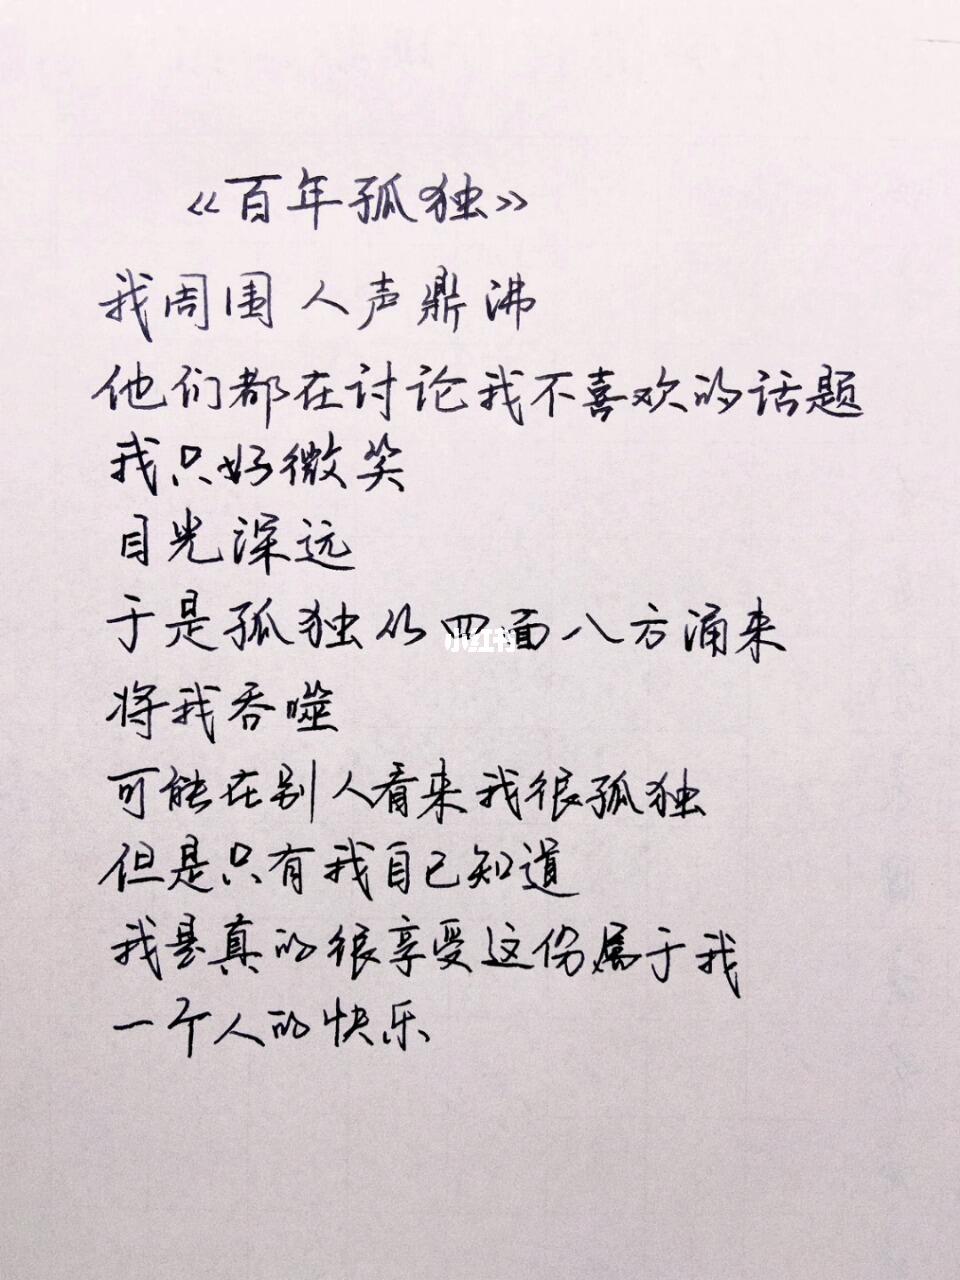 《百年孤独》
我周围人声鼎沸
他们都在讨论我不喜欢的话题
我只好微笑
目光深远
于是孤独从四面八方涌来
小红书
将我吞噬
可能在别人看来我很孤独
但是只有我自己知道
我是真的很享受这份属于我
一个人的快乐